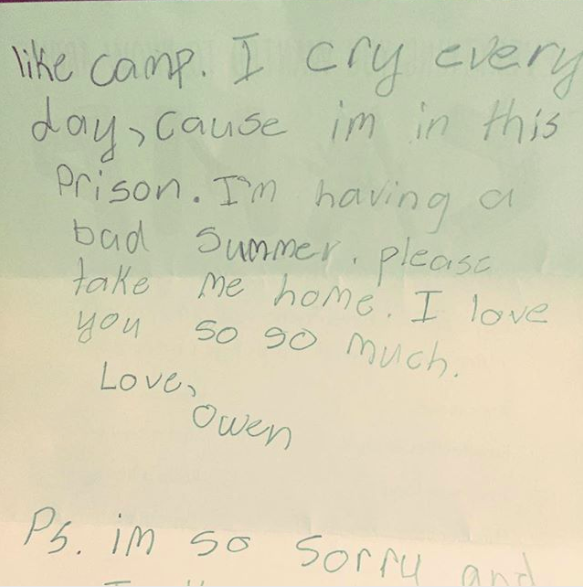 like camp. I cry every
day, cause im in this
Prison. I'm having a
bad summer. please
take me home. I love
you so so much.
Love,
Owen
Ps. im so sorry and